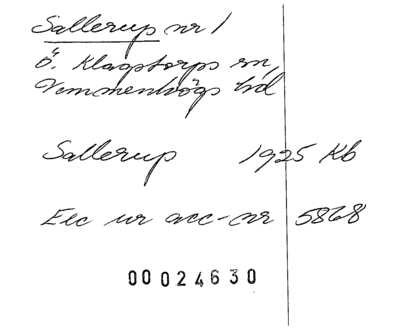 Sallerup nr 1
Ö. Klagstorps sn,
Vemmenhögs hd
Sallerup 1925 Kb
Exc ur acc-nr 5868
00024630